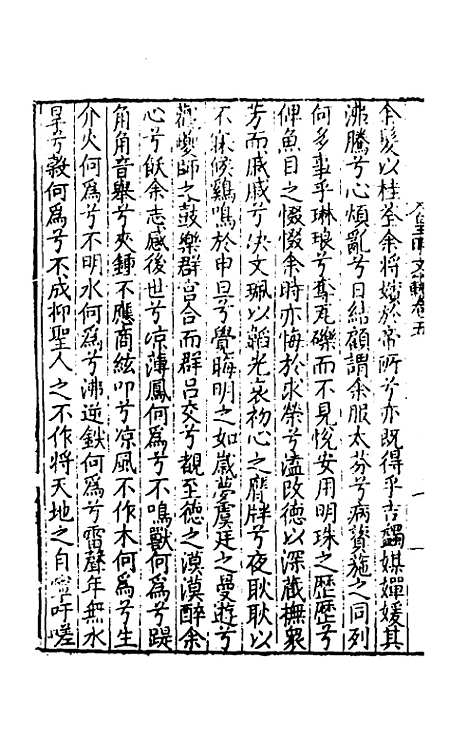 皇明文卷五
一
余髮以桂荃余將嬪於帝所兮亦既得乎吉蠲媒嬋媛其
沸騰兮心煩亂兮日結顧謂余服太芬兮病薋葹之同列
何多事乎琳琅兮奪瓦礫而不見悅安用明珠之歷歷兮
俾魚目之惙惙余時亦悔於求榮兮溘改德以深藏撫衆
芳而戚戚兮決文珮以韜光哀初心之牉兮夜耿耿以
不寐候鷄鳴於申旦兮覺晦明之如歲夢虞廷之曼遊兮
觀夔師之鼓樂群宫合而群吕交兮覩至德之漠漠醉余
心兮飫余志感後世兮凉薄鳳何為兮不鳴獸何為兮踶
角角音舉兮夾鍾不應商絃叩兮凉風不作木何為兮生
介火何為兮不明水何為兮沸逆鉄何為兮雷聲年無水
旱兮穀何為兮不成抑聖人之不作將天地之自寧吁嗟